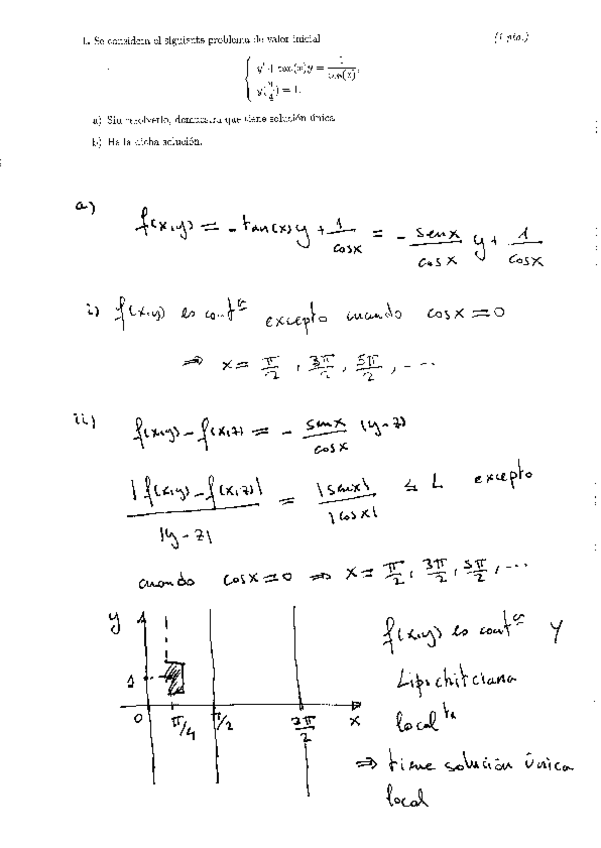 1. Se considera el siguiente problema de valor inicial (1 pto.)
y' + tan(x)y = 1/cos(x),
y(π/4) = 1.
a) Sin resolverlo, demuestra que tiene solución única.
b) Halla dicha solución.
a) f(x,y) = -tan(x)y + 1/cosx = - senx/cosx y + 1/cosx
i) f(x,y) es contª excepto cuando cosx = 0
⇒ x = π/2, 3π/2, 5π/2, ...
ii) f(x,y) - f(x,z) = - senx/cosx (y-z)
|f(x,y) - f(x,z)|/|y-z| = |senx|/|cosx| ≤ L excepto
cuando cosx = 0 ⇒ x = π/2, 3π/2, 5π/2, ...
y
1
0 π/4 π/2 3π/2 x
f(x,y) es contª y
Lipschitziana
local
⇒ tiene solución única
local